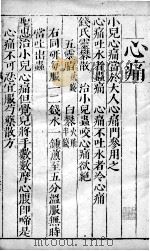 心痛
小兒心痛當於大人心痛門參用之
心痛吐水者蟲痛 心痛不吐水者冷心痛
錢氏靈礬散 治小兒蟲咬心痛欲絕
五靈脂末二錢 白礬火飛半錢
右同研每服二錢水一鍾煎至五分溫服無時
當吐出蟲
治小兒心痛但覺兒將手數數摩心腹即啼是
心痛不可忍宜服芍藥散方